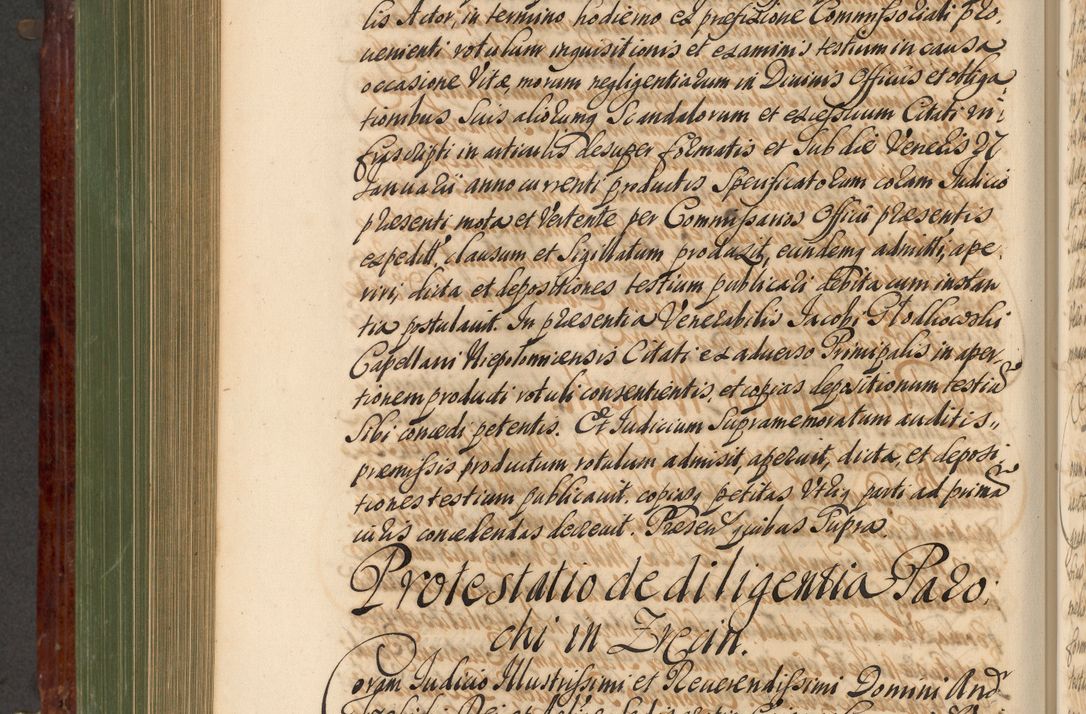 lis Actor, in termino hodierno ex præfixione Commissoriali pro,
uenienti rotulum inquisitionis et examinis testium in causa
occasione Vitæ, morum negligentiarum in Diuinis Officiis et obliga,
tionibus suis aliorumq Scandalorum et excessuum Citati in,
frascripti in articulis desuper formatis et sub die Veneris 27
Januarii anno currenti productis specificatorum coram Judicio
præsenti mota et Vertente per Commissarios Officii præsentis
expedit, clausum et Sigillatum produxit, eundemq admitti, ape,
riri, dicta et depositiones testium publicari debita cum instan
tia postulauit. In præsentia Venerabilis Jacobi Głodkowski
Capellani Niepolomicensis Citati ex aduerso Principalis in aper,
tionem producti rotuli consentientis, et copias depositionum testiū
Sibi concedi petentis. Et Judicium Supramemoratum auditis,,
præmissis productum rotulum admisit, aperuit, dicta, et deposi,
tiones testium publicauit, copiasq petitas Vtriq parti ad primā
iuris concedendas decreuit. Præsen quibus Supra.
Protestatio de diligentia Paro,
chi in
Coram Judicio Illustrissimi et Reuerendissimi Domini And